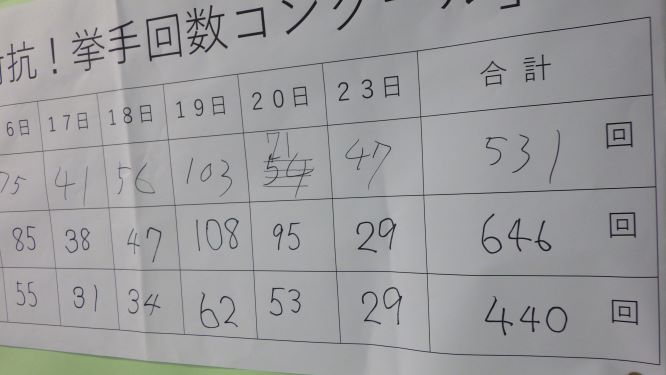 抗！挙手回数コンクール
6日 17日 18日 19日 20日 23日 合計
75 41 56 103 71 54 47 531 回
85 38 47 108 95 29 646 回
55 31 34 62 53 29 440 回